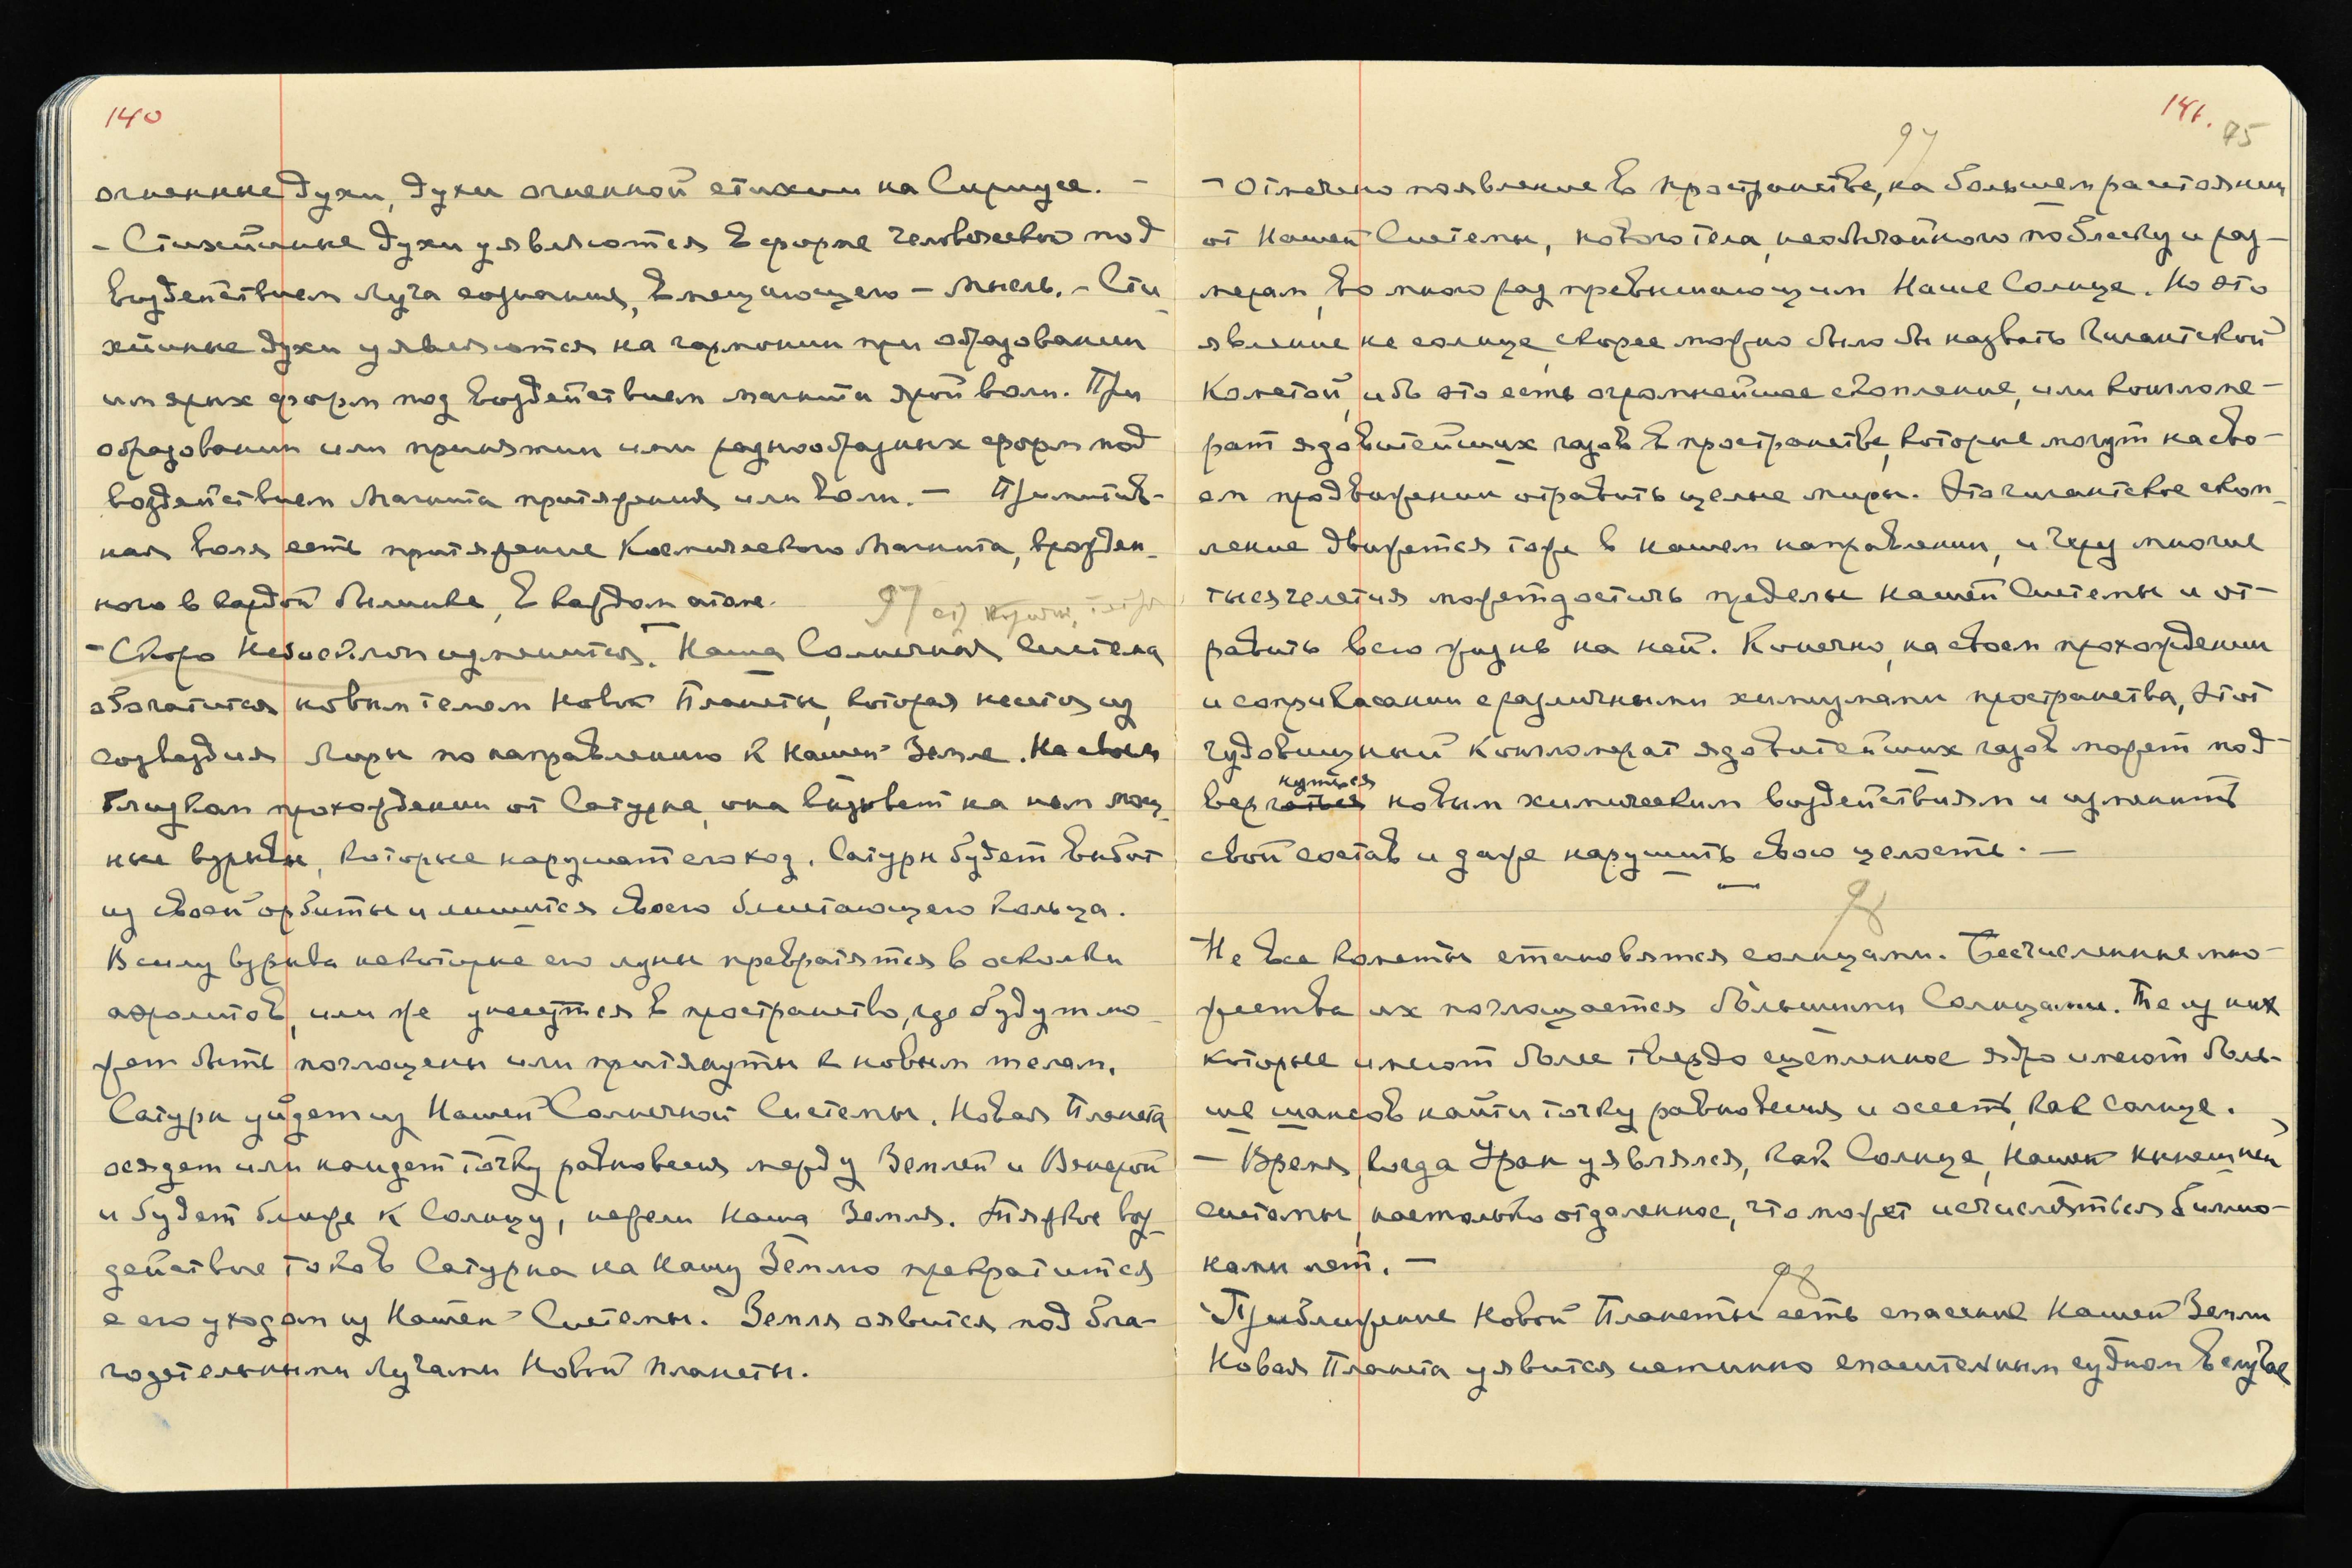 140
огненные духи, духи огненной стихии на Сириусе. –
– Стихийные духи уявляются в форме человеческой под
воздействием луча сознания, вмещающего – мысль. – Сти-
хийные духи уявляются на гармонии при образовании
им ярых форм под воздействием магнита ярой воли. При
образовании или принятии ими разнообразных форм под
воздействием магнита притяжения или воли. – Примитив-
ная воля есть притяжение Космического Магнита, врожден-
ного в каждой былинке, в каждом атоме.
97
– Скоро Небосклон изменится. Наша Солнечная система
обогатится новым телом Новой Планеты, которая несется из
созвездия Лиры по направлению к нашей Земле. На своем
близком прохождении от Сатурна, она вызовет на нем мощ-
ные взрывы, которые нарушат его ход. Сатурн будет выбит
из своей орбиты и лишится своего блистающего кольца.
В силу взрыва некоторые его луны превратятся в осколки
аэролитов, или же унесутся в пространство, где будут мо-
жет быть поглощены или притянуты к новым телам.
Сатурн уйдет из Нашей Солнечной Системы. Новая Планета
осядет или найдет точку равновесия между Землей и Венерой
и будет ближе к Солнцу, нежели Наша Земля. Тяжкое воз-
действие токов Сатурна на Нашу Землю прекратится
с его уходом из Нашей Системы. Земля оявится под бла-
годетельными Лучами Новой Планеты.
141.
95
97
– Отмечено появление в пространстве, на большем расстоянии
от Нашей Системы, нового тела, необычайного по блеску и раз-
мерам, во много раз превышающим Наше Солнце. Но это
явление не солнце, скорее можно было бы назвать Гигантской
Кометой, ибо это есть огромнейшее скопление, или конгломе-
рат ядовитейших газов в пространстве, которые могут на сво-
ем продвижении отравить целые миры. Это гигантское скоп-
ление движется тоже в нашем направлении, и через многие
тысячелетия может достичь пределы Нашей Системы и от-
равить всю жизнь на ней. Конечно, на своем прохождении
и соприкасании с различными химизмами пространства, этот
чудовищный конгломерат ядовитейших газов может под-
нуться
верг новым химическим воздействиям и изменить
свой состав и даже нарушить свою целость. –
98
Не все кометы становятся солнцами. Бесчисленные мно-
жества их поглощается бо́льшими Солнцами. Те из них
которые имеют более твердо сцепленное ядро имеют боль-
ше шансов найти точку равновесия и осесть, как солнце.
– Время, когда Уран уявлялся, как Солнце, нашей нынешней
системы, настолько отдаленное, что может исчисляться билио-
нами лет. –
98
Приближение Новой Планеты есть спасение Нашей Земли
Новая Планета уявится истинно спасительным судном в случае